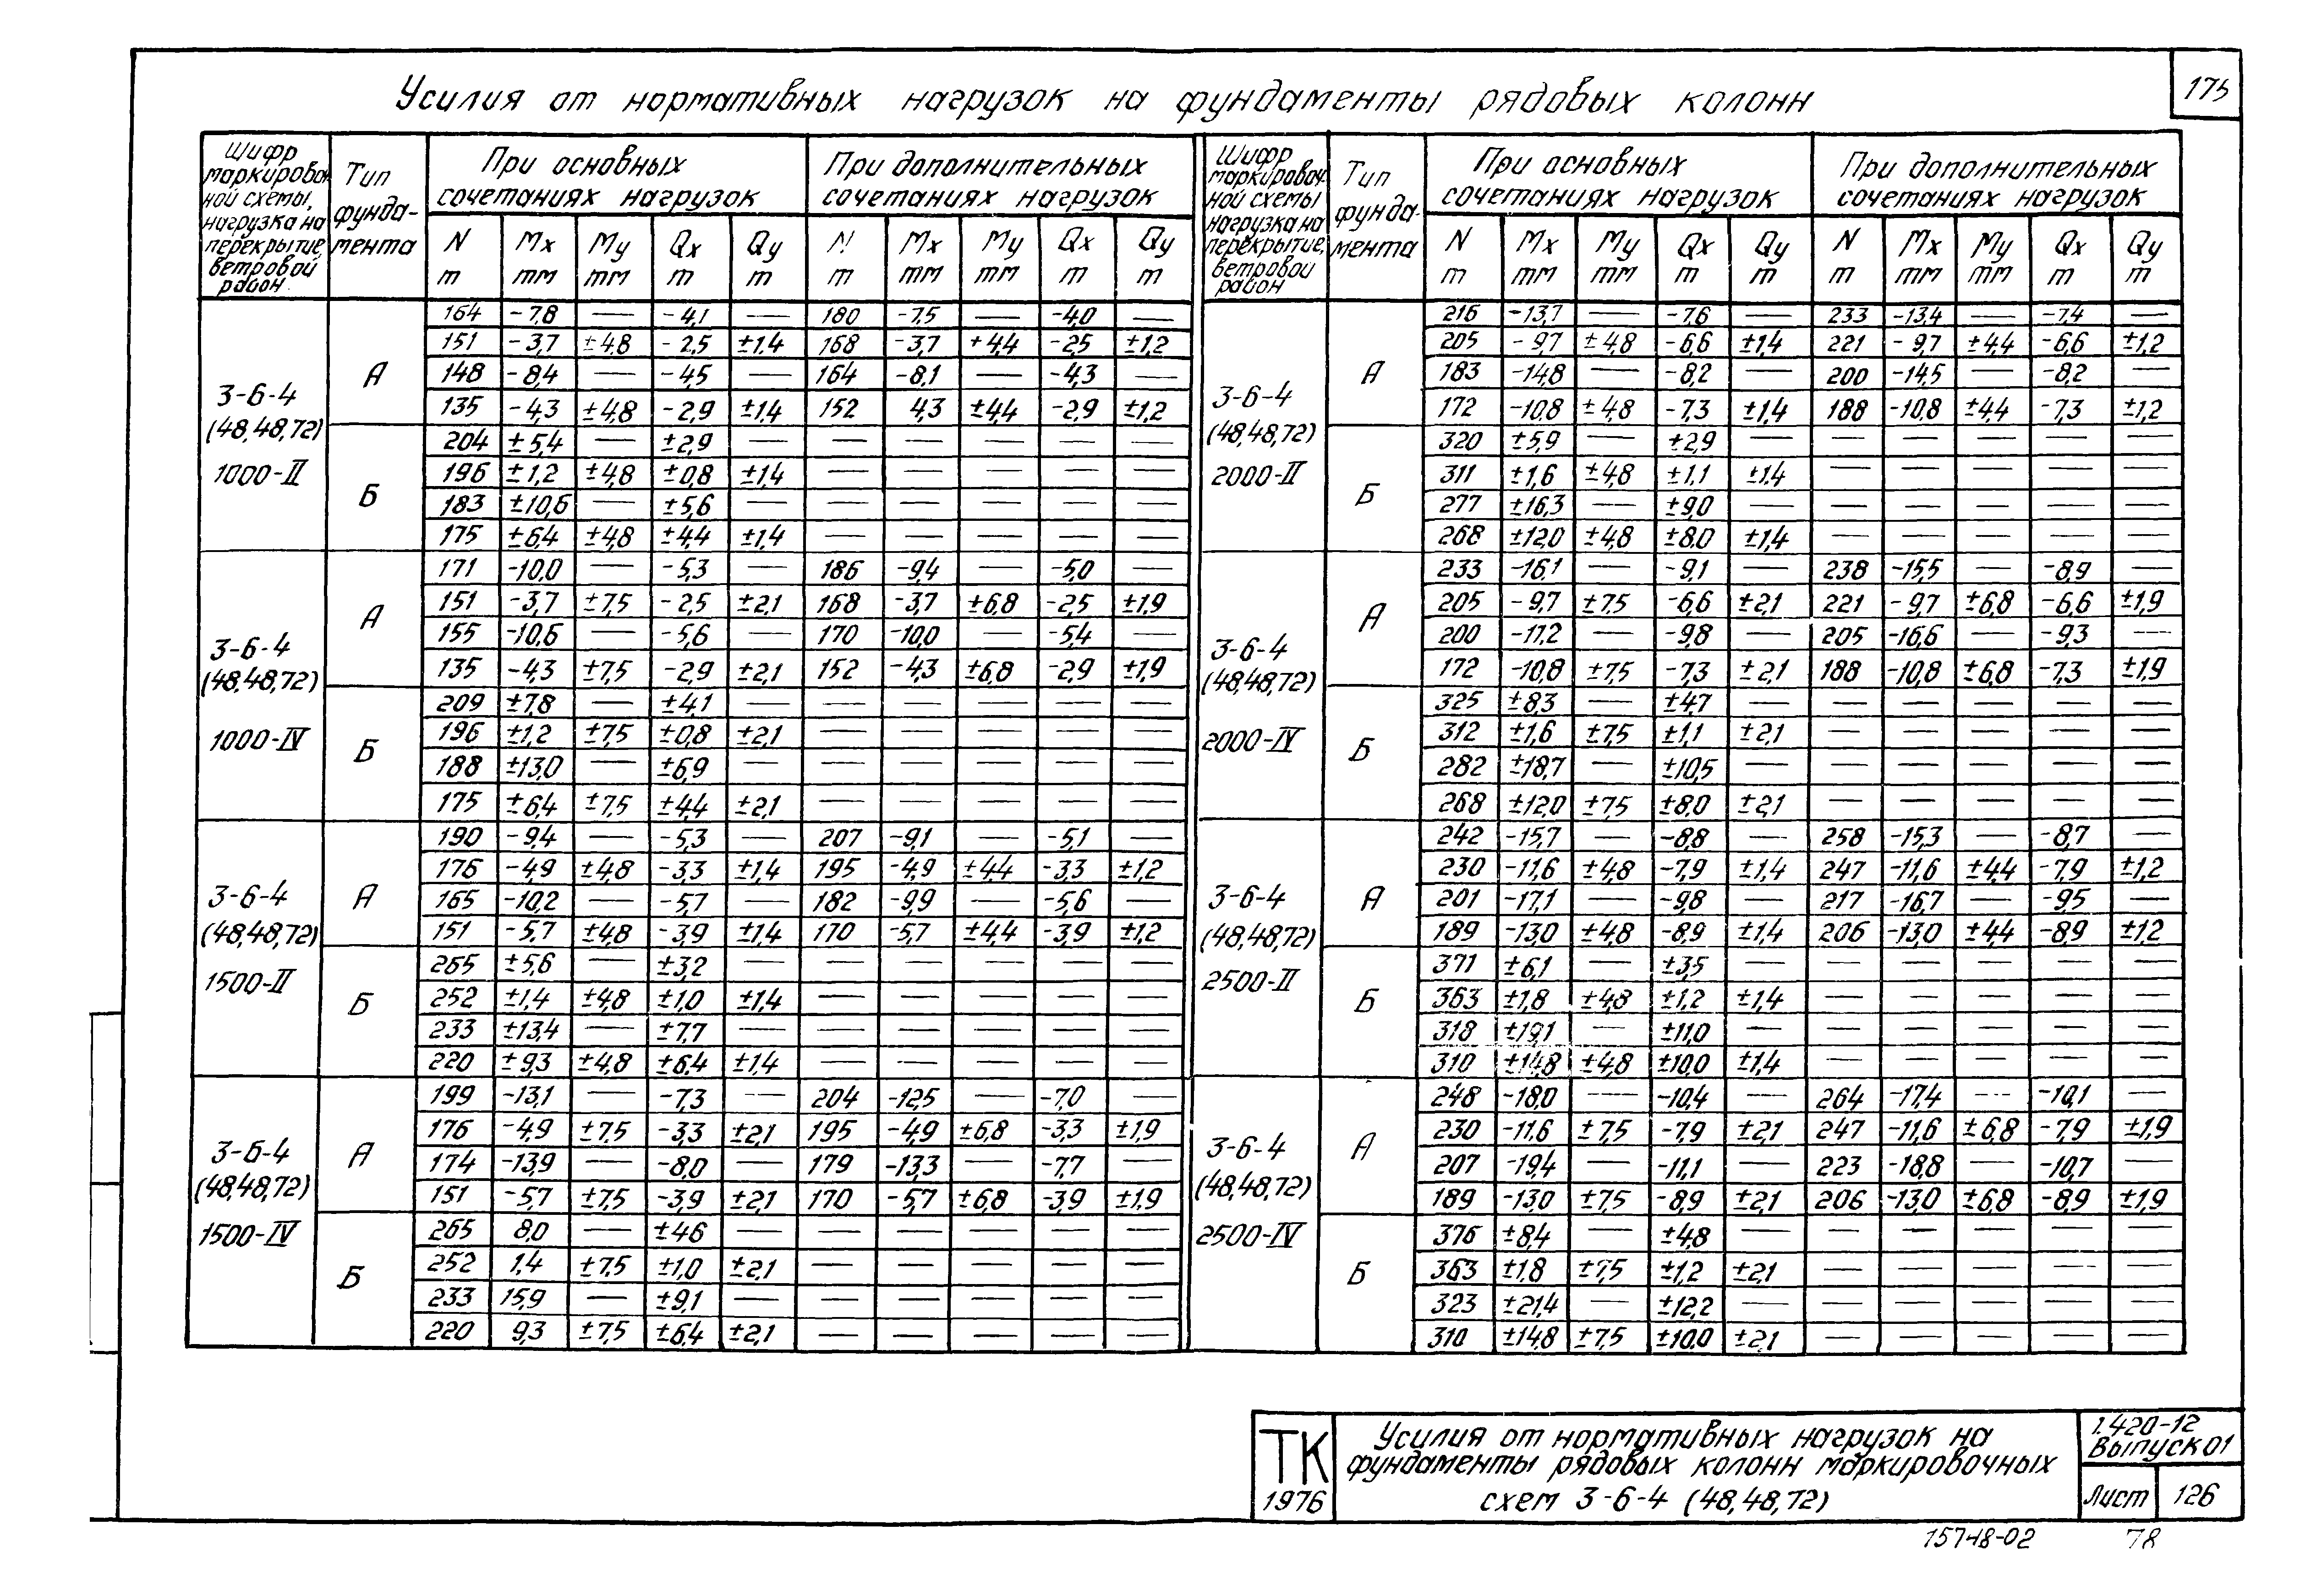 175
Усилия от нормативных нагрузок на фундаменты рядовых колонн
Шифр маркировоч ной схемы, нагрузка на перекрытие, ветровой район
Тип фунда- мента
При основных сочетаниях нагрузок
При дополнительных сочетаниях нагрузок
N т Mx тм My тм Qx т Qy т N т Mx тм My тм Qx т Qy т
3-6-4 (48,48,72) 1000-II
А
164 -7,8 — -4,1 — 180 -7,5 — -4,0 —
151 -3,7 ±4,8 -2,5 ±1,4 168 -3,7 +4,4 -2,5 ±1,2
148 -8,4 — -4,5 — 164 -8,1 — -4,3 —
135 -4,3 ±4,8 -2,9 ±1,4 152 4,3 ±4,4 -2,9 ±1,2
Б
204 ±5,4 — ±2,9 — — — — — —
196 ±1,2 ±4,8 ±0,8 ±1,4 — — — — —
183 ±10,6 — ±5,6 — — — — — —
175 ±6,4 ±4,8 ±4,4 ±1,4 — — — — —
3-6-4 (48,48,72) 1000-IV
А
171 -10,0 — -5,3 — 186 -9,4 — -5,0 —
151 -3,7 ±7,5 -2,5 ±2,1 168 -3,7 ±6,8 -2,5 ±1,9
155 -10,6 — -5,6 — 170 -10,0 — -5,4 —
135 -4,3 ±7,5 -2,9 ±2,1 152 -4,3 ±6,8 -2,9 ±1,9
Б
209 ±7,8 — ±4,1 — — — — — —
196 ±1,2 ±7,5 ±0,8 ±2,1 — — — — —
188 ±13,0 — ±6,9 — — — — — —
175 ±6,4 ±7,5 ±4,4 ±2,1 — — — — —
3-6-4 (48,48,72) 1500-II
А
190 -9,4 — -5,3 — 207 -9,1 — -5,1 —
176 -4,9 ±4,8 -3,3 ±1,4 195 -4,9 ±4,4 -3,3 ±1,2
165 -10,2 — -5,7 — 182 -9,9 — -5,6 —
151 -5,7 ±4,8 -3,9 ±1,4 170 -5,7 ±4,4 -3,9 ±1,2
Б
265 ±5,6 — ±3,2 — — — — — —
252 ±1,4 ±4,8 ±1,0 ±1,4 — — — — —
233 ±13,4 — ±7,7 — — — — — —
220 ±9,3 ±4,8 ±6,4 ±1,4 — — — — —
3-6-4 (48,48,72) 1500-IV
А
199 -13,1 — -7,3 — 204 -12,5 — -7,0 —
176 -4,9 ±7,5 -3,3 ±2,1 195 -4,9 ±6,8 -3,3 ±1,9
174 -13,9 — -8,0 — 179 -13,3 — -7,7 —
151 -5,7 ±7,5 -3,9 ±2,1 170 -5,7 ±6,8 -3,9 ±1,9
Б
265 8,0 — ±4,6 — — — — — —
252 1,4 ±7,5 ±1,0 ±2,1 — — — — —
233 15,9 — ±9,1 — — — — — —
220 9,3 ±7,5 ±6,4 ±2,1 — — — — —
Шифр маркировоч ной схемы нагрузка на перекрытие, ветровой район
Тип фунда- мента
При основных сочетаниях нагрузок
При дополнительных сочетаниях нагрузок
N т Mx тм My тм Qx т Qy т N т Mx тм My тм Qx т Qy т
3-6-4 (48,48,72) 2000-II
А
216 -13,7 — -7,6 — 233 -13,4 — -7,4 —
205 -9,7 ±4,8 -6,6 ±1,4 221 -9,7 ±4,4 -6,6 ±1,2
183 -14,8 — -8,2 — 200 -14,5 — -8,2 —
172 -10,8 ±4,8 -7,3 ±1,4 188 -10,8 ±4,4 -7,3 ±1,2
Б
320 ±5,9 — ±2,9 — — — — — —
311 ±1,6 ±4,8 ±1,1 ±1,4 — — — — —
277 ±16,3 — ±9,0 — — — — — —
268 ±12,0 ±4,8 ±8,0 ±1,4 — — — — —
3-6-4 (48,48,72) 2000-IV
А
233 -16,1 — -9,1 — 238 -15,5 — -8,9 —
205 -9,7 ±7,5 -6,6 ±2,1 221 -9,7 ±6,8 -6,6 ±1,9
200 -17,2 — -9,8 — 205 -16,6 — -9,3 —
172 -10,8 ±7,5 -7,3 ±2,1 188 -10,8 ±6,8 -7,3 ±1,9
Б
325 ±8,3 — ±4,7 — — — — — —
312 ±1,6 ±7,5 ±1,1 ±2,1 — — — — —
282 ±18,7 — ±10,5 — — — — — —
268 ±12,0 ±7,5 ±8,0 ±2,1 — — — — —
3-6-4 (48,48,72) 2500-II
А
242 -15,7 — -8,8 — 258 -15,3 — -8,7 —
230 -11,6 ±4,8 -7,9 ±1,4 247 -11,6 ±4,4 -7,9 ±1,2
201 -17,1 — -9,8 — 217 -16,7 — -9,5 —
189 -13,0 ±4,8 -8,9 ±1,4 206 -13,0 ±4,4 -8,9 ±1,2
Б
371 ±6,1 — ±3,5 — — — — — —
363 ±1,8 ±4,8 ±1,2 ±1,4 — — — — —
318 ±19,1 — ±11,0 — — — — — —
310 ±14,8 ±4,8 ±10,0 ±1,4 — — — — —
3-6-4 (48,48,72) 2500-IV
А
248 -18,0 — -10,4 — 264 -17,4 — -10,1 —
230 -11,6 ±7,5 -7,9 ±2,1 247 -11,6 ±6,8 -7,9 ±1,9
207 -19,4 — -11,1 — 223 -18,8 — -10,7 —
189 -13,0 ±7,5 -8,9 ±2,1 206 -13,0 ±6,8 -8,9 ±1,9
Б
376 ±8,4 — ±4,8 — — — — — —
363 ±1,8 ±7,5 ±1,2 ±2,1 — — — — —
323 ±21,4 — ±12,2 — — — — — —
310 ±14,8 ±7,5 ±10,0 ±2,1 — — — — —
ТК
1976
Усилия от нормативных нагрузок на
фундаменты рядовых колонн маркировочных
схем 3-6-4 (48,48,72)
1.420-12
Выпуск 01
Лист 126
15748-02 78